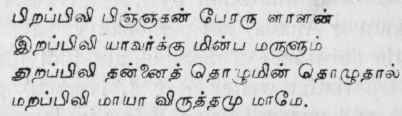 பிறப்பிலி பிஞ்ஞகன் பேரரு ளாளன
இறப்பிலி யாவர்க்கு மின்ப மருளும்
துறப்பிலி தன்னைத் தொழுமின் தொழுதால்
மறப்பிலி மாயா விருத்தமு மாமே.